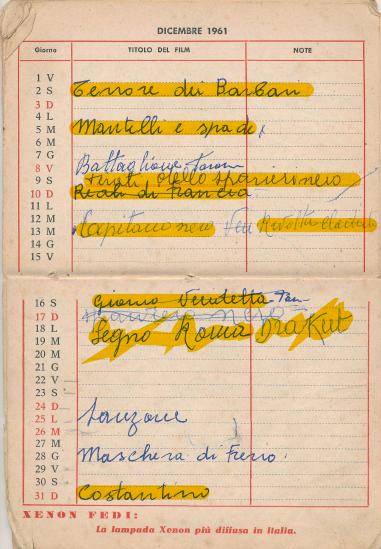 DICEMBRE 1961
Giorno TITOLO DEL FILM NOTE
1 V
2 S Terrore dei Barbari
3 D
4 L
5 M Mantelli e spade
6 M
7 G
8 V Battaglione
9 S dello sparviero nero
10 D Reali di Francia
11 L
12 M
13 M Capitano nero Ven Rivolta
14 G
15 V
16 S Giorno Vendetta
17 D nero
18 L Segno Roma Drakut
19 M
20 M
21 G
22 V
23 S
24 D
25 L
26 M
27 M
28 G Maschera di Ferro
29 V
30 S
31 D Costantino
XENON FEDI:
La lampada Xenon più diffusa in Italia.